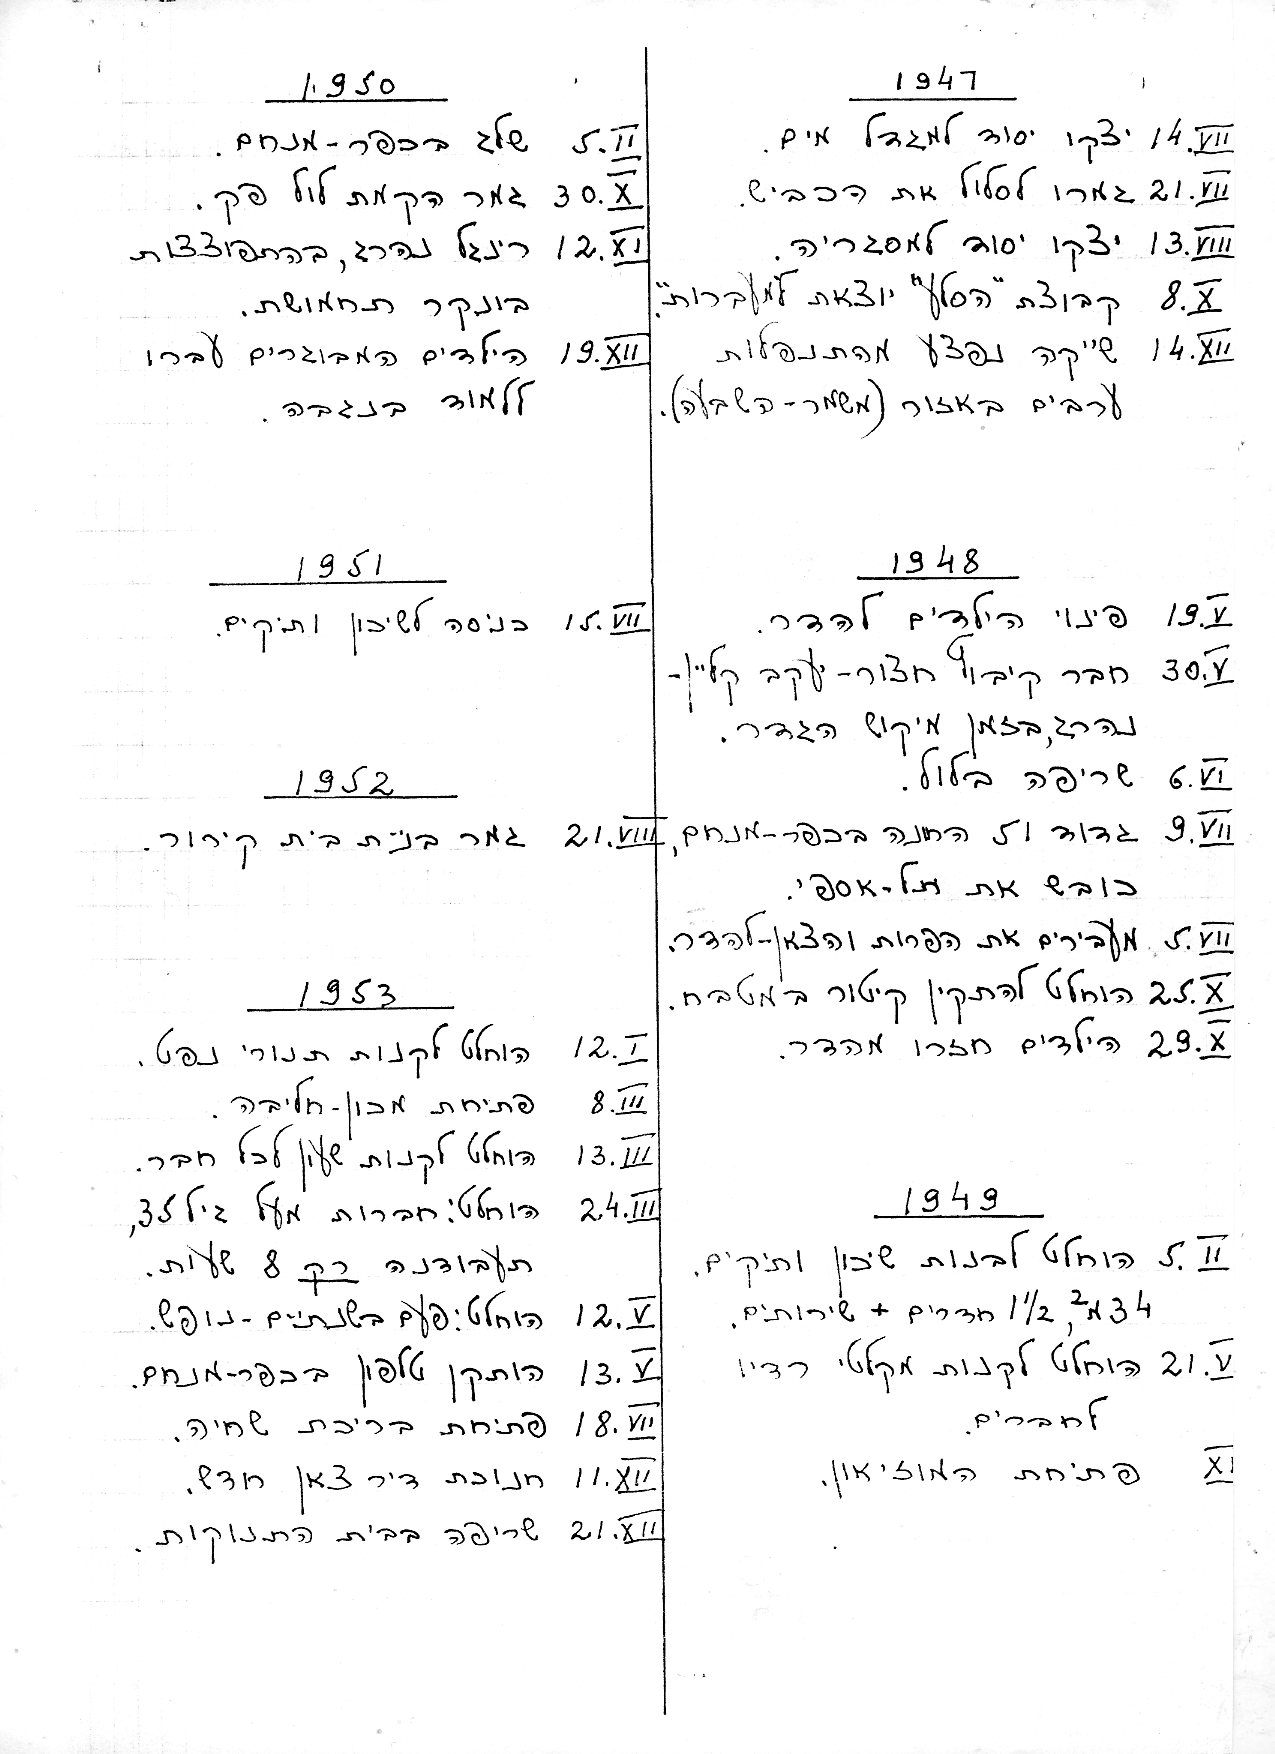 1947
14.VII יצקו יסוד למגדל מים.
21.VII גמרו לסלול את הכביש.
13.VIII יצקו יסוד למסגריה.
8.X קבוצת "הסלע" יוצאת ל"מעברות".
14.XII שייקה נפצע מהתנפלות
ערבים באזור (משמר-השבעה).
1948
19.V פינוי הילדים להדר.
30.V חבר קיבוץ חצור-יעקב קליין-
נהרג, בזמן מיקוש הגדר.
6.VI שריפה בלול.
9.VII גדוד 51 החנה בכפר-מנחם,
כובש את תל-אספי.
5.VII מעבירים את הפרות והצאן-להדר.
25.X הוחלט להתקין קיטור במטבח.
29.X הילדים חזרו מהדר.
1949
5.II הוחלט לבנות שיכון ותיקים.
34 מ², 1½ חדרים + שירותים.
21.V הוחלט לקנות מקלטי רדיו
לחברים.
XI פתיחת המוזיאון.
1950
5.II שלג בכפר-מנחם.
30.X גמר הקמת לול פק.
12.XI רינגל נהרג, בהתפוצצות
בונקר תחמושת.
19.XII הילדים המבוגרים עברו
ללמוד בנגבה.
1951
15.VII כניסה לשיכון ותיקים.
1952
21.VIII גמר בניית בית קירור.
1953
12.I הוחלט לקנות תנורי נפט.
8.III פתיחת מכון-חליבה.
13.III הוחלט לקנות שעון לכל חבר.
24.III הוחלט: חברות מעל גיל 35,
תעבודנה רק 8 שעות.
12.V הוחלט: פעם בשנתיים-נופש.
13.V הותקן טלפון בכפר-מנחם.
18.VII פתיחת בריכת שחיה.
11.XII חנוכת דיר צאן חדש.
21.XII שריפה בבית התנוקות.